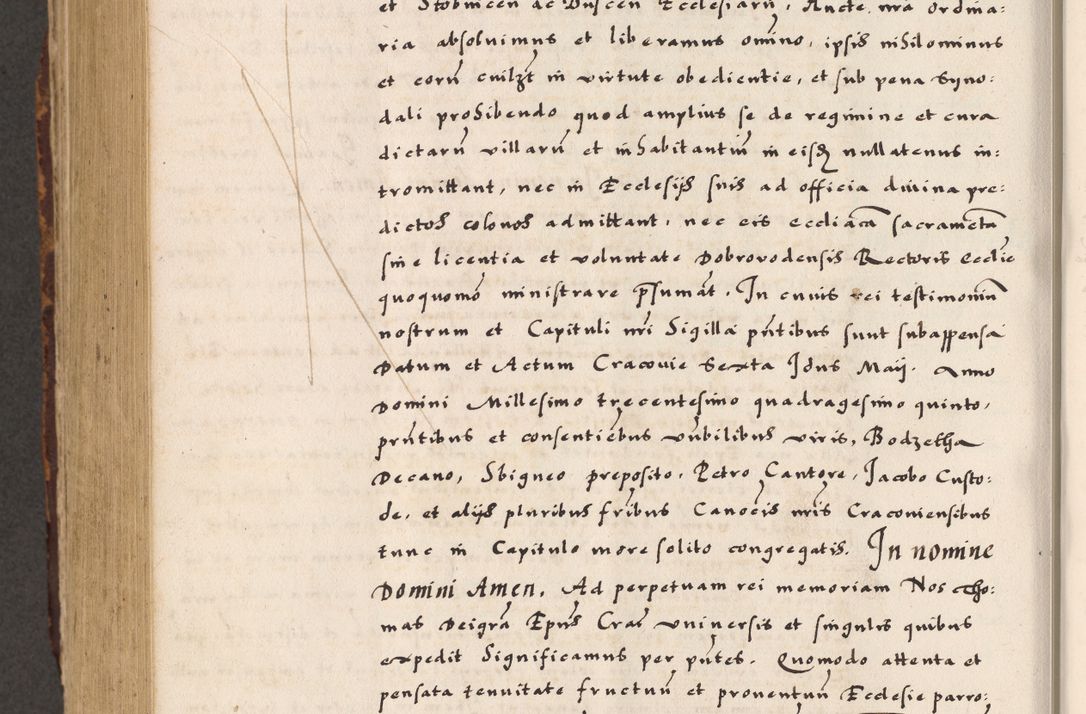 et Stobnicen ac Buscen Ecclesiarũ, Aucte. nrã ordina:
ria absoluimus et liberamus omino, ipsis nihilominus
et eorũ cuilzt in virtute obedientie, et sub pena Syno:
dali prohibendo quod amplius se de regimine et cura
dictarũ villarũ et inhabitantiũ in eisdẽ nullatenus in:
tromittant, nec in Ecclesijs suis ad officia diuina pre:
dictos colonos admittant, nec eis eccliãca sacramẽta
sine licentia et voluntate Dobrovodensis Rectoris ecclie
quoquomõ ministrare p̃sumãt. In cuuis rei testimoniũ
nostrum et Capituli nrĩ Sigilla pñtibus sunt subappensa
Datum et Actum Cracouie Sexta Idus Maij. Anno
Domini Millesimo trecentesimo quadragesimo quinto,
pr̃ntibus et consentiẽbus vñbilibus viris, Bodzetha
Decano, Sbigneo preposito, Petro Cantore, Jacobo Custo:
de, et alijs pluribus fribus Canocis nrĩs Cracouiensibus
tunc in Capitulo more solito congregatis. In nomine
Domini Amen, Ad perpetuam rei memoriam Nos Tho:
mas Deigrã Ep̃us Craĉ vniuersis et singulis quibus
expedit Significamus per pñtes. Quomodo attenta et
pensata tenuitate fructuũ et prouentuũ Ecclesie parro: